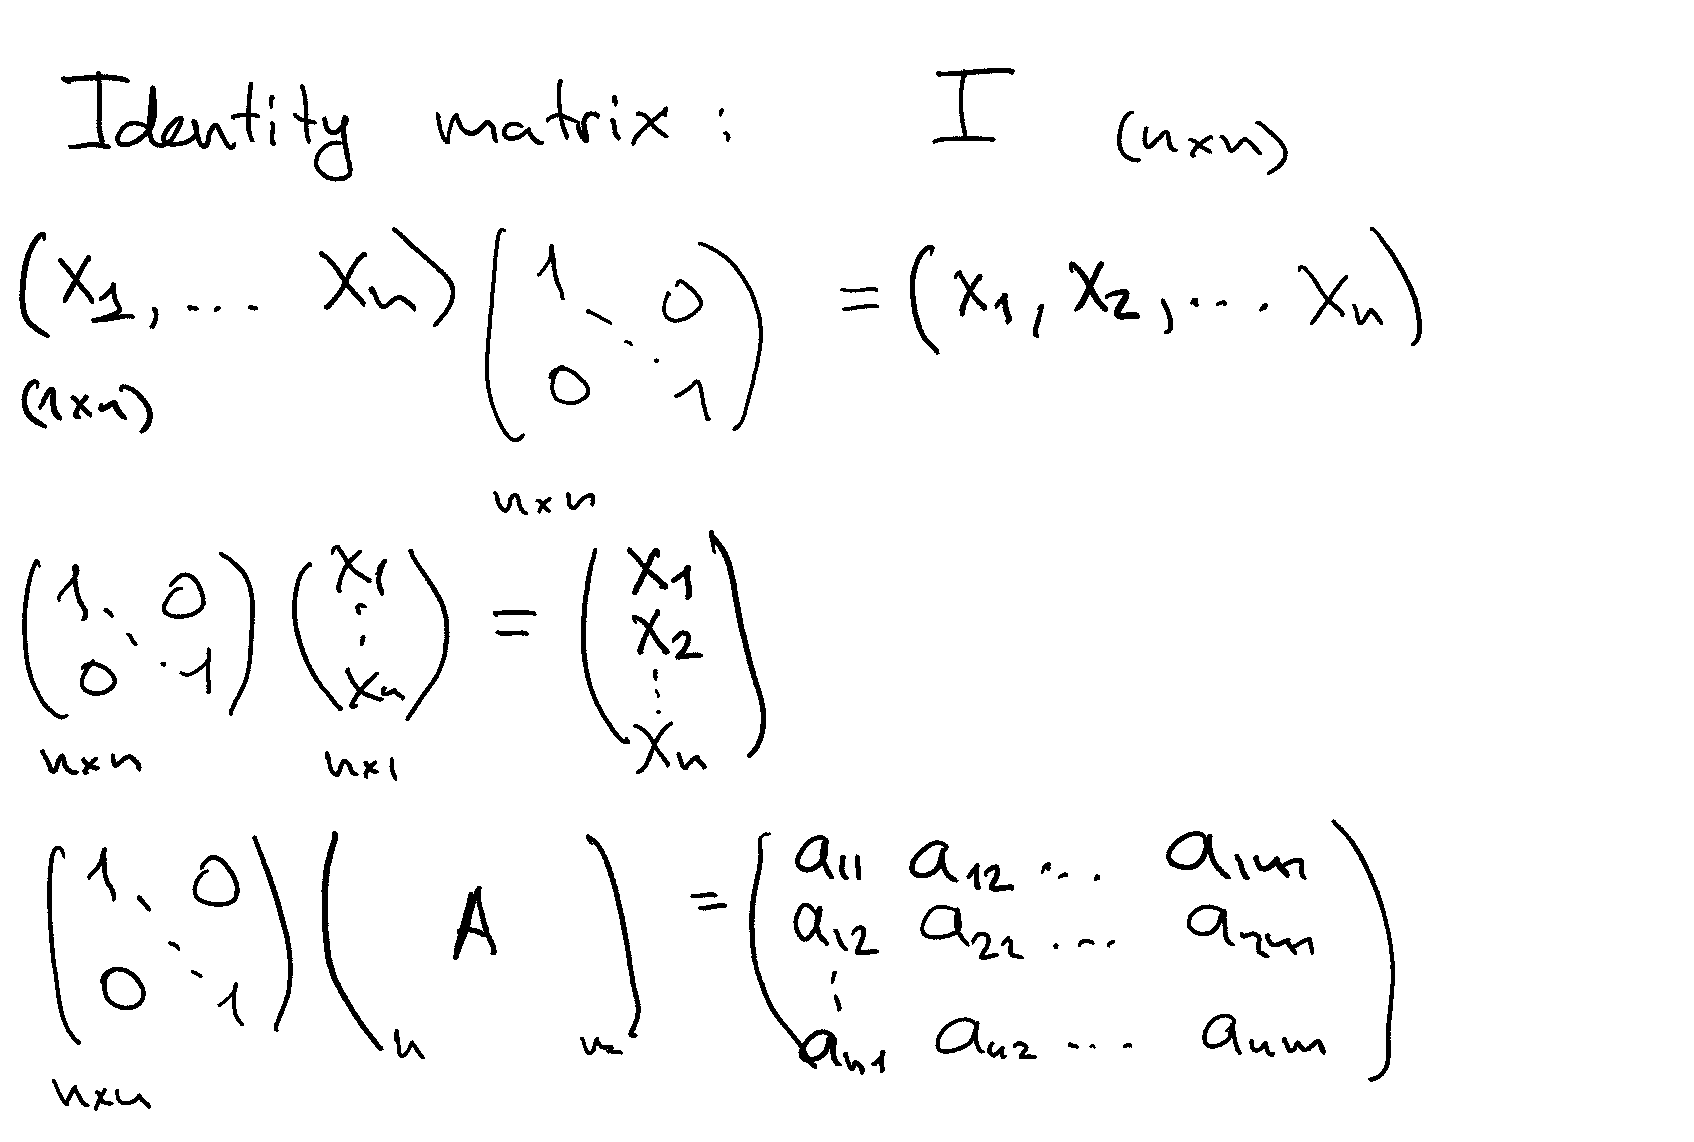 Identity matrix : I (n×n)
(x₁, ... xₙ) (1 ⋱ 0 0 1) = (x₁, x₂, ... xₙ)
(1×n)
n×n
(1 ⋱ 0 0 1) (x₁ ⋮ xₙ) = (x₁ x₂ ⋮ xₙ)
n×n n×1
(1 ⋱ 0 0 1) ( A ) = (a₁₁ a₁₂ ... a₁ₘ
a₁₂ a₂₂ ... a₂ₘ
⋮
n aₙ₁ aₙ₂ ... aₙₘ)
n×n